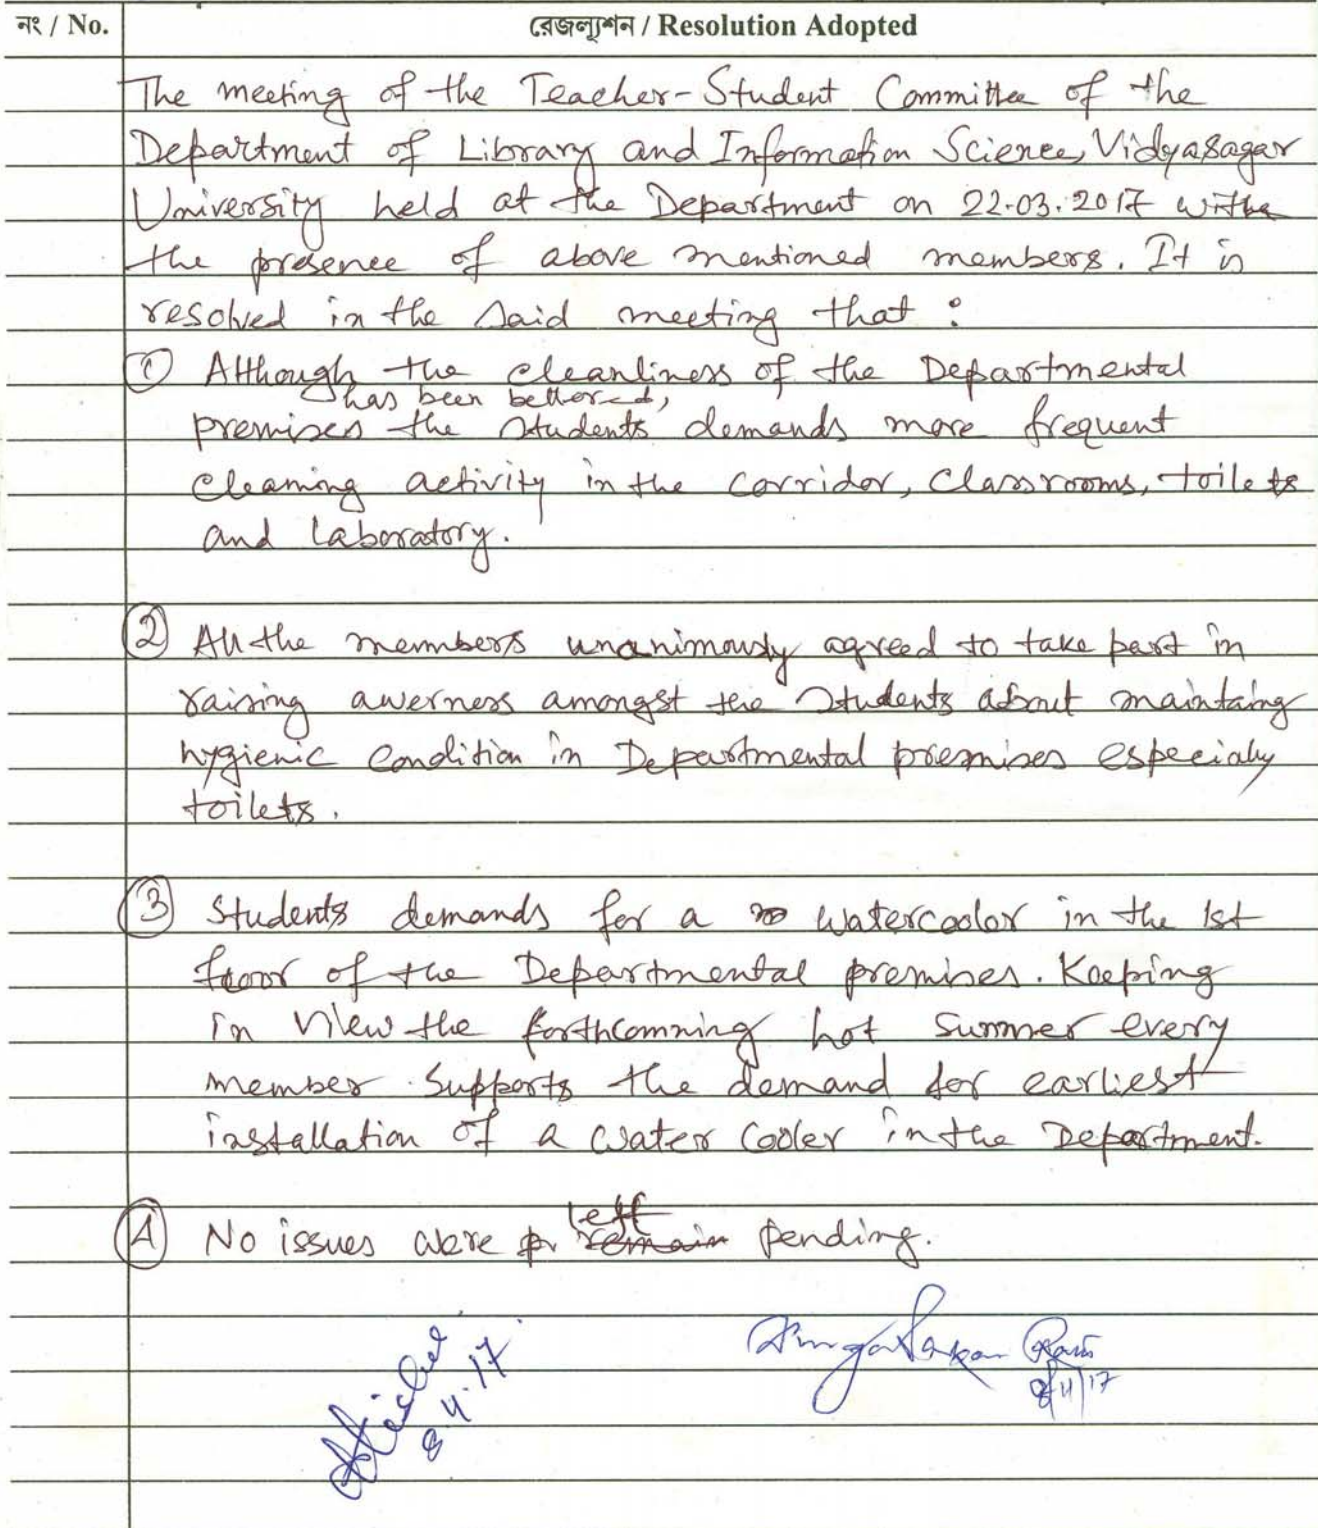 নং / No. রেজল্যুশন / Resolution Adopted
The meeting of the Teacher-Student Committee of the
Department of Library and Information Science, Vidyasagar
University held at the Department on 22.03.2017 withe
the presence of above mentioned members. It is
resolved in the said meeting that :
① Although the cleanliness of the Departmental
has been bettered,
premises the students demands more frequent
cleaning activity in the corridor, classrooms, toilets
and laboratory.
② All the members unanimously agreed to take part in
raising awerness amongst the students about maintaing
hygienic condition in Departmental premises especialy
toilets.
③ Students demands for a watercooler in the 1st
floor of the Departmental premises. Keeping
in view the forthcomning hot summer every
member supports the demand for earliest
installation of a water cooler in the Department.
④ No issues were left
remain pending.
8.4.17